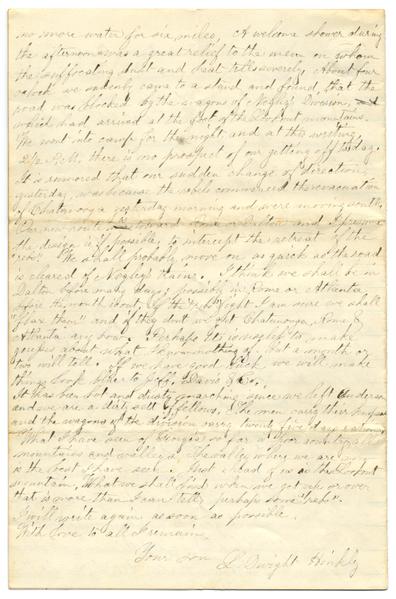 no more water for six miles. A welcome shower during
the afternoon was a great relief to the men on whom
the suffocating dust and heat tells severely. About four
oclock we sudenly came to a stand and found that the
road was blocked by the wagons of Negley's Division,
which had arrived at the foot of the mountains.
We went into camp for the night and at this writing,
2 1/2 P.M. there is no prospect of our getting off today.
It is rumored that our sudden change of direction
yesterday, was because the rebels commenced the evacuation
of Chatanooga yesterday morning and were moving south.
Our new route is toward Rome or Dalton and I presume
the design is if possible, to intercept the retreat of the
"rebs". We shall probably move on as quick as the road
is cleared of Negley's trains. I think we shall be in
Dalton before many days; possibly in Rome or Atlanta
before the month is out. If the rebs fight I am sure we shall
"flax them" and if they dont we get Chatanooga, Rome &
Atlanta any how. Perhaps it is useless to make
guesses about what I know nothing of but a month or
two will tell. If we have good luck we will make
things look bilious to Jeff. Davis & Co.
It has been hot and dusty marching since we left Anderson
and we are a dirty set of fellows. The men carry their knapsacks
and the wagons of the division carry twenty five days rations.
What I have seen of Georgia so far is poor country all
mountains and valleys. The valley where we are now
is the best I have seen. Just ahead of us is the
mountain. What we shall find when we get up or over
that is more than I can tell, perhaps some "rebs".
I will write again as soon as possible.
With love to all I remain
Your son L Dwight Hinkly